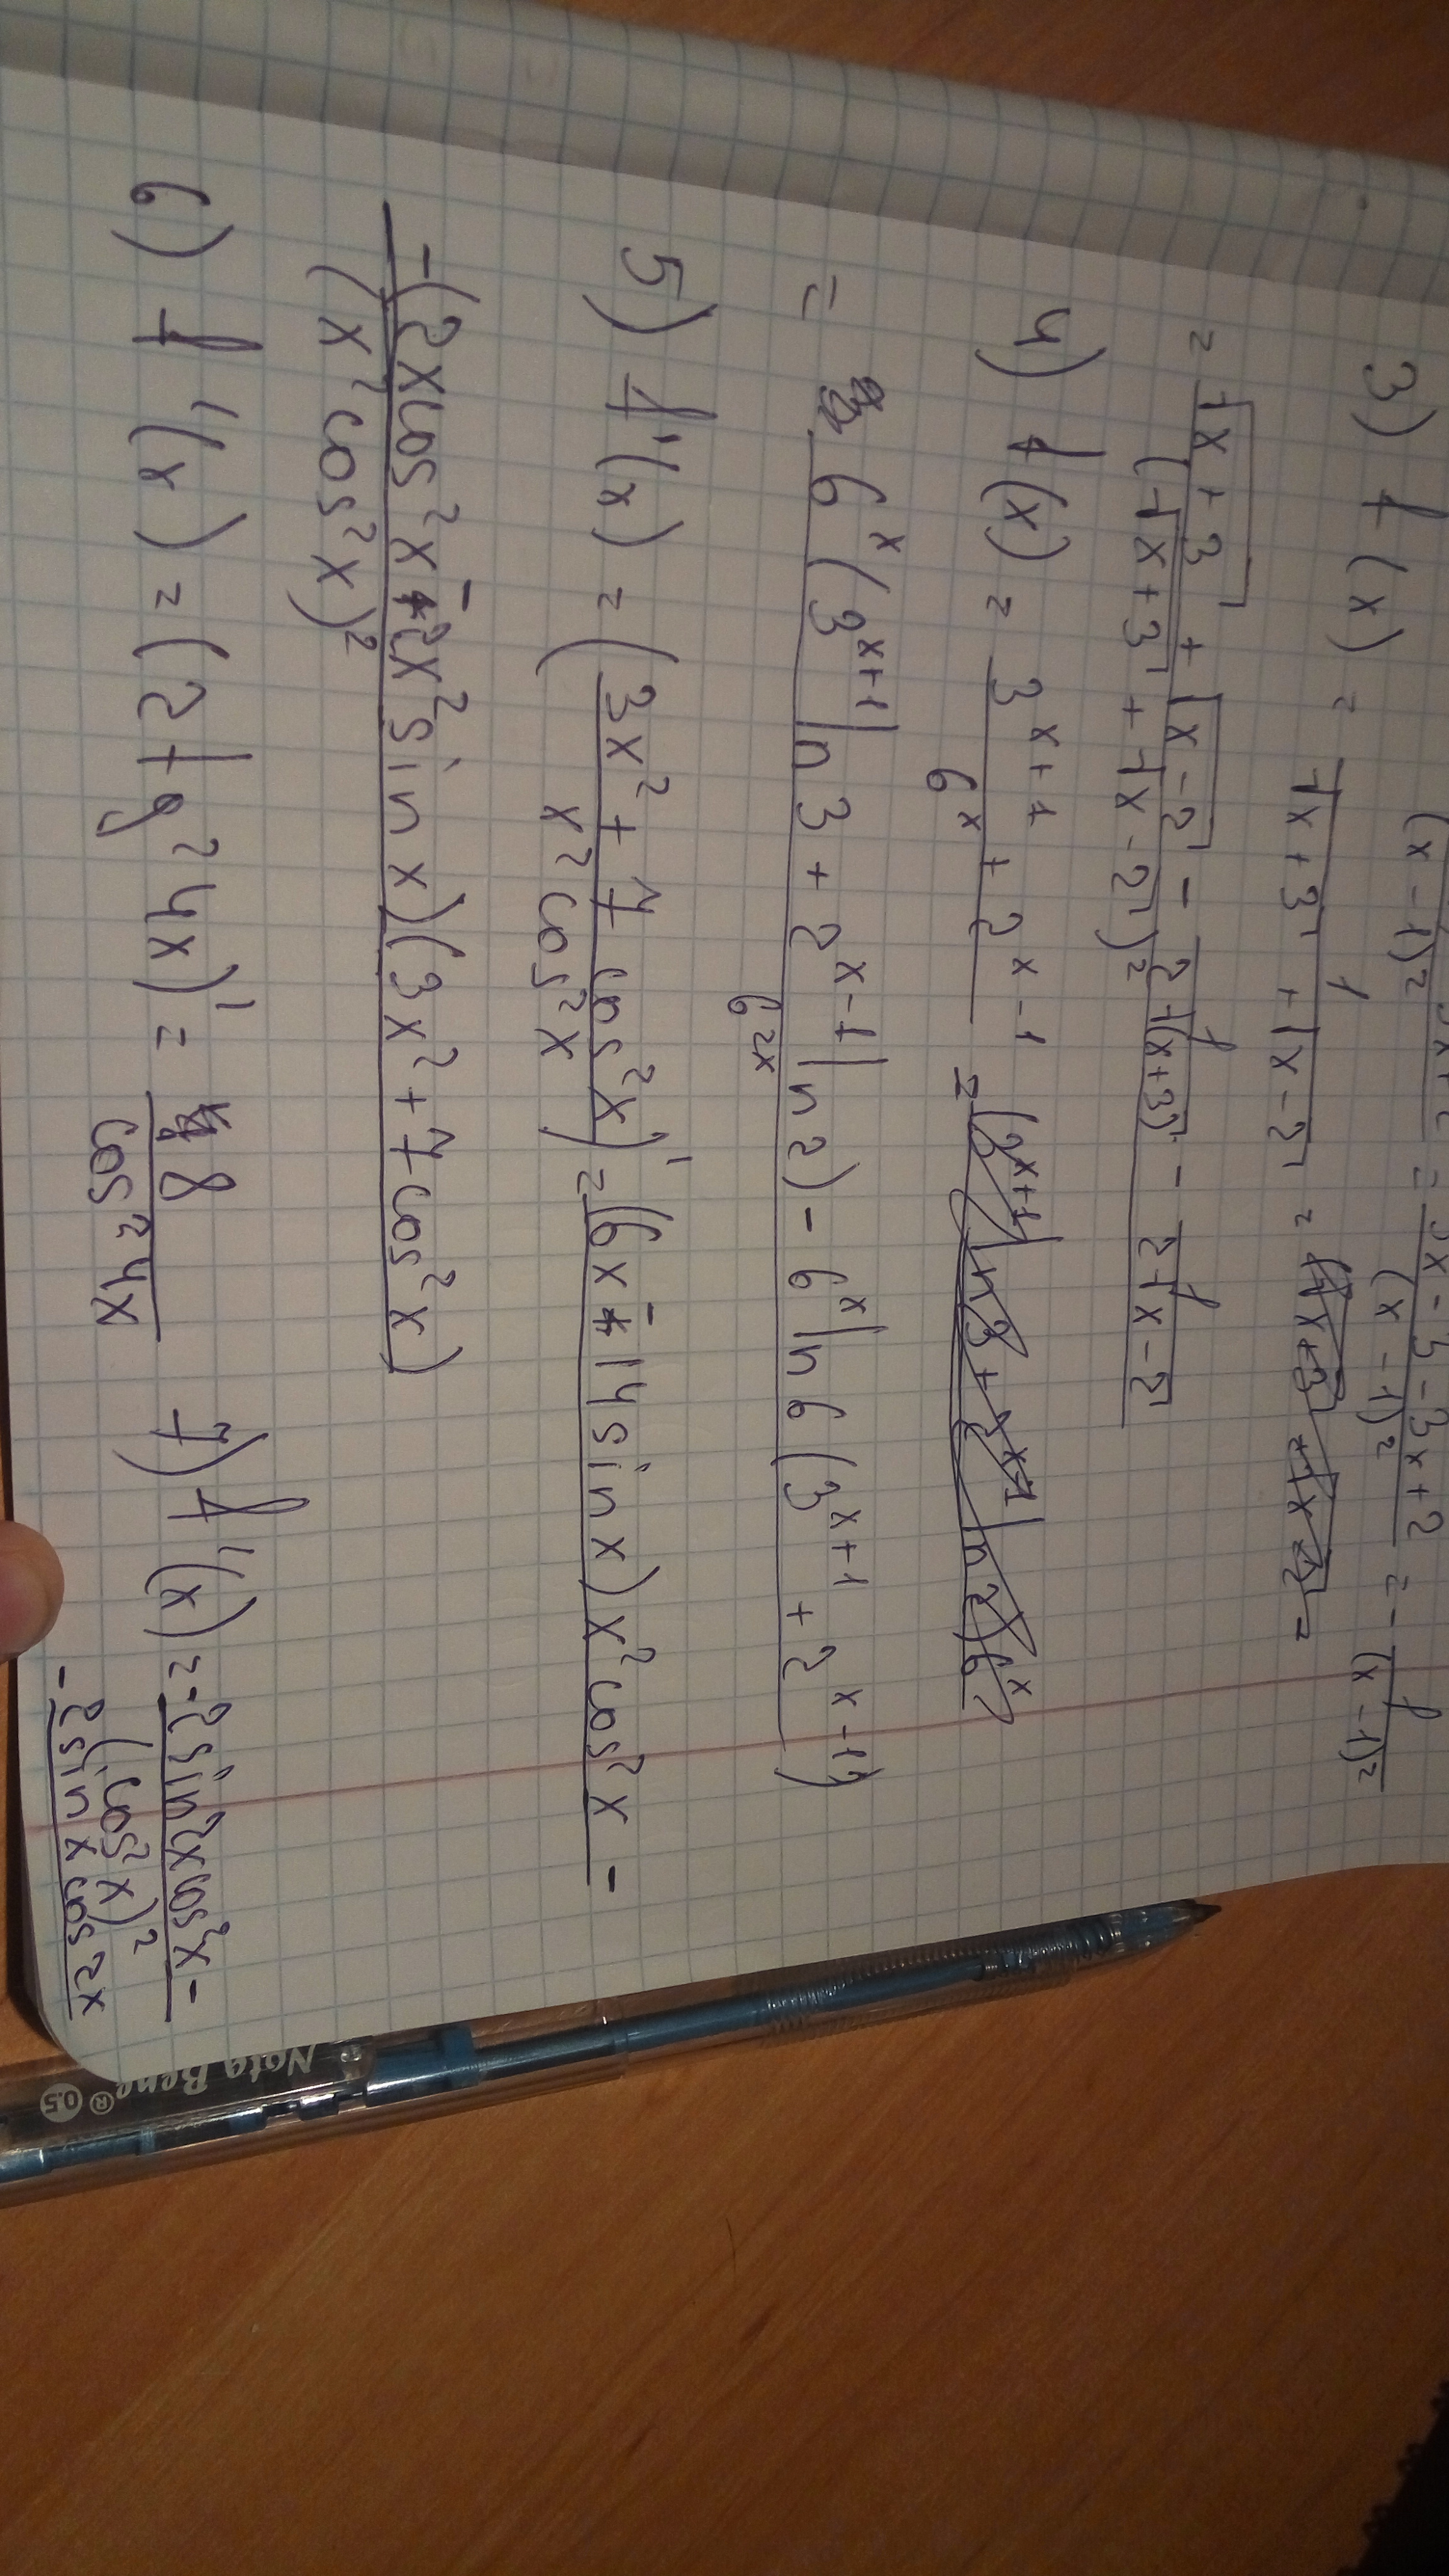 (x - 1)² = 3x - 3 - 3x + 2 / (x - 1)² = - 1 / (x - 1)²
3) f(x) = 1 / √x + 3 + √x - 2 =
= √x + 3 + √x - 2 - 1 / 2√(x+3) - 1 / 2√x - 2 / (√x + 3 + √x - 2)²
4) f(x) = 3ˣ⁺¹ + 2ˣ⁻¹ / 6ˣ =
= 6ˣ(3ˣ⁺¹ln3 + 2ˣ⁻¹ln2) - 6ˣln6(3ˣ⁺¹ + 2ˣ⁻¹) / 6²ˣ
5) f'(x) = (3x² + 7cos²x / x²cos²x)' = (6x - 14sinx)(x²cos²x -
- (2xcos²x - 2x²sinx)(3x² + 7cos²x) / (x²cos²x)²
6) f'(x) = (2tg²4x)' = 8 / cos²4x 7) f'(x) = -2sin2xcos²x - / (cos²x)²
- 2sinxcos2x
Nota Bene® 0.5